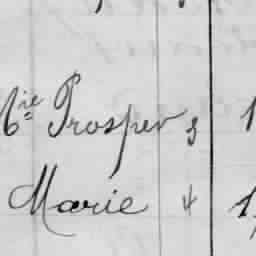 Mie Prosper 3 1
Marie 4 1